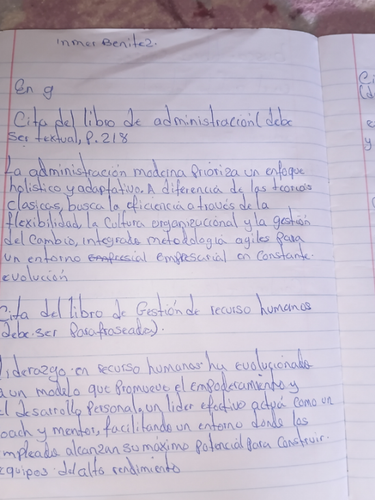 inmer Benitez.
En g
Cita del libro de administracion( debe
ser textual, P. 218
La administración moderna Prioriza un enfoque
holistico y adaptativo. A diferencia de las teorias
clasicas, busca la eficiencia a través de la
flexibilidad, la Cultura organizacional y la gestión
del Cambio, integrado metodologia agiles para
un entorno empresarial en constante.
evolución
Cita del libro de Gestión de recurso humanos
debe ser Parafraseados).
liderazgo en recurso humanos ha evolucionado
a un modelo que Promueve el empoderamiento y
el desarrollo Personal, un lider efectivo actúa como un
coach y mentor, facilitando un entorno donde los
empleada alcanzan su máximo potencial para construir.
equipos de alta rendimiento
Ci
y